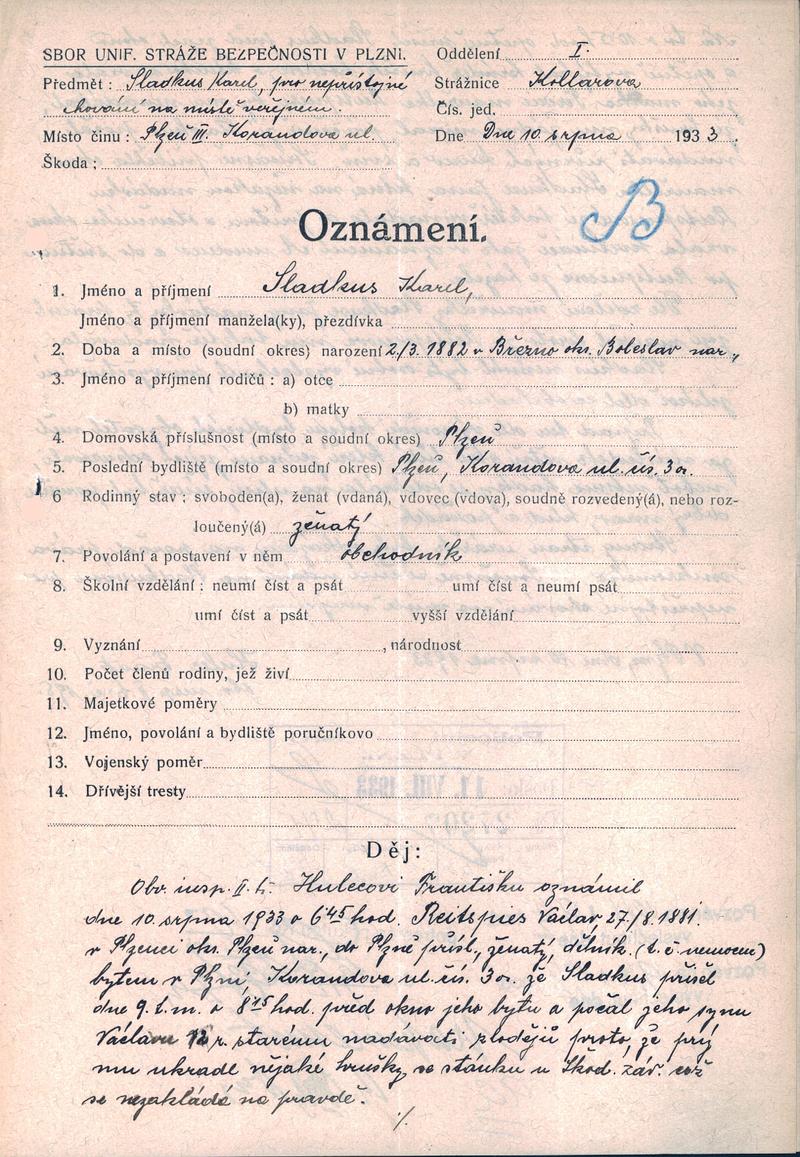 SBOR UNIF. STRÁŽE BEZPEČNOSTI V PLZNI.
Oddělení I.
Předmět: Sladkus Karel, pro nepřístojné
Strážnice Kollarova
chování na místě veřejném.
Čís. jed.
Místo činu: Plzeň III. Korandova ul.
Dne Dne 10. srpna 1933.
Škoda:
B
Oznámení.
1. Jméno a příjmení Sladkus Karel,
Jméno a příjmení manžela(ky), přezdívka
2. Doba a místo (soudní okres) narození 2./3. 1882 v Březno okr. Boleslav nar.,
3. Jméno a příjmení rodičů: a) otce
b) matky
4. Domovská příslušnost (místo a soudní okres) Plzeň
5. Poslední bydliště (místo a soudní okres) Plzeň, Korandova ul. čís. 3 a.
6 Rodinný stav; svoboden(a), ženat (vdaná), vdovec (vdova), soudně rozvedený(á), nebo roz-
loučený(á) ženatý
7. Povolání a postavení v něm obchodník
8. Školní vzdělání: neumí číst a psát umí číst a neumí psát
umí číst a psát vyšší vzdělání
9. Vyznání, národnost
10. Počet členů rodiny, jež živí
11. Majetkové poměry
12. Jméno, povolání a bydliště poručníkovo
13. Vojenský poměr
14. Dřívější tresty
Děj:
Obv. insp. II. t. Hulecovi Františku oznámil
dne 10. srpna 1933 o 6 45 hod. Reitspies Václav, 27./8. 1881.
v Plzenci okr. Plzeň nar., do Plzně přísl., ženatý, dělník. (t. č. nemocen)
bytem v Plzni, Korandova ul. čís. 3 a. že Sladkus přišel
dne 9. t. m. o 8 15 hod. před okno jeho bytu a počal jeho synu
Václavu 12 r. starému nadávati zlodějů proto, že prý
mu ukradl nějaké hrušky, se stánku u Škod. záv. což
se nezakládá na pravdě.
./.
11. VIII. 1933